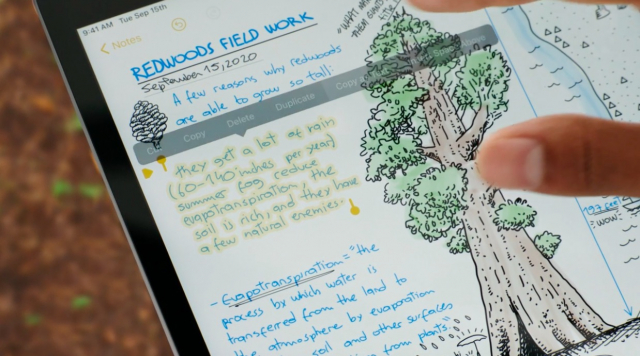 9:41 AM Tue Sep 15th
Notes
REDWOODS FIELD WORK
September 15, 2020
A few reasons why redwoods
are able to grow so tall:
Copy
Delete
Duplicate
Copy
they get a lot of rain
(60-140 inches per year)
summer fog reduce
evapotranspiration, the
soil is rich, and they have
a few natural enemies.
- Evapotranspiration = "the
process by which water is
transferred from the land to
the atmosphere by evaporation
soil and other surfaces
from plants"
197 feet
"WOW"